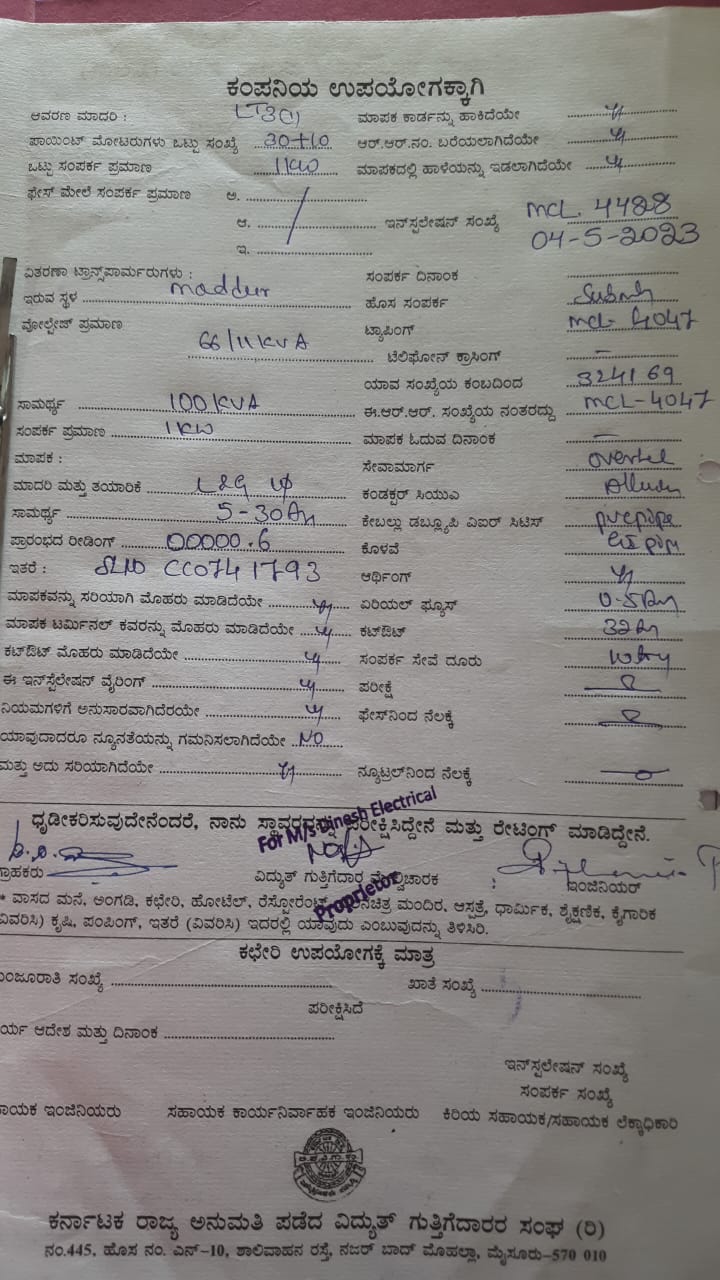 ಕಂಪನಿಯ ಉಪಯೋಗಕ್ಕಾಗಿ
ಆವರಣ ಮಾದರಿ : LT3(1) ಮಾಪಕ ಕಾರ್ಡನ್ನು ಹಾಕಿದೆಯೇ
ಪಾಯಿಂಟ್ ಮೋಟರುಗಳು ಒಟ್ಟು ಸಂಖ್ಯೆ 30+10 ಆರ್.ಆರ್.ನಂ. ಬರೆಯಲಾಗಿದೆಯೇ
ಒಟ್ಟು ಸಂಪರ್ಕ ಪ್ರಮಾಣ 1KW ಮಾಪಕದಲ್ಲಿ ಹಾಳೆಯನ್ನು ಇಡಲಾಗಿದೆಯೇ
ಫೇಸ್ ಮೇಲೆ ಸಂಪರ್ಕ ಪ್ರಮಾಣ ಅ.
ಆ. ಇನ್‌ಸ್ಟಲೇಷನ್ ಸಂಖ್ಯೆ MCL 4428
ಇ. 04-5-2023
ವಿತರಣಾ ಟ್ರಾನ್ಸ್‌ಪಾರ್ಮರುಗಳು : ಸಂಪರ್ಕ ದಿನಾಂಕ
ಇರುವ ಸ್ಥಳ Maddur ಹೊಸ ಸಂಪರ್ಕ
ವೋಲ್ಟೇಜ್ ಪ್ರಮಾಣ 66/11KVA ಟ್ಯಾಪಿಂಗ್ MCL-4047
ಟೆಲಿಫೋನ್ ಕ್ರಾಸಿಂಗ್ –
ಯಾವ ಸಂಖ್ಯೆಯ ಕಂಬದಿಂದ 324169
ಸಾಮರ್ಥ್ಯ 100KVA ಈ.ಆರ್.ಆರ್. ಸಂಖ್ಯೆಯ ನಂತರದ್ದು MCL-4047
ಸಂಪರ್ಕ ಪ್ರಮಾಣ 1KW ಮಾಪಕ ಓದುವ ದಿನಾಂಕ –
ಮಾಪಕ : ಸೇವಾಮಾರ್ಗ
ಮಾದರಿ ಮತ್ತು ತಯಾರಿಕೆ L&G ಕಂಡಕ್ಟರ್ ಸಿಯುಎ
ಸಾಮರ್ಥ್ಯ 5-30 ಕೇಬಲ್ಲು ಡಬ್ಲ್ಯೂಪಿ ವಿಐರ್ ಸಿಟಿಸ್
ಪ್ರಾರಂಭದ ರೀಡಿಂಗ್ 00000.6 ಕೊಳವೆ
ಇತರೆ : SLNO CC0741793 ಆರ್ಥಿಂಗ್
ಮಾಪಕವನ್ನು ಸರಿಯಾಗಿ ಮೊಹರು ಮಾಡಿದೆಯೇ ಏರಿಯಲ್ ಫ್ಯೂಸ್
ಮಾಪಕ ಟರ್ಮಿನಲ್ ಕವರನ್ನು ಮೊಹರು ಮಾಡಿದೆಯೇ ಕಟ್‌ಔಟ್
ಕಟ್‌ಔಟ್ ಮೊಹರು ಮಾಡಿದೆಯೇ ಸಂಪರ್ಕ ಸೇವೆ ದೂರು
ಈ ಇನ್‌ಸ್ಟೆಲೇಷನ್ ವೈರಿಂಗ್ ಪರೀಕ್ಷೆ
ನಿಯಮಗಳಿಗೆ ಅನುಸಾರವಾಗಿದೆರಯೇ ಫೇಸ್‌ನಿಂದ ನೆಲಕ್ಕೆ
ಯಾವುದಾದರೂ ನ್ಯೂನತೆಯನ್ನು ಗಮನಿಸಲಾಗಿದೆಯೇ NO
ಮತ್ತು ಅದು ಸರಿಯಾಗಿದೆಯೇ ನ್ಯೂಟ್ರಲ್‌ನಿಂದ ನೆಲಕ್ಕೆ
ಧೃಡೀಕರಿಸುವುದೇನೆಂದರೆ, ನಾನು ಪರೀಕ್ಷಿಸಿದ್ದೇನೆ ಮತ್ತು ರೇಟಿಂಗ್ ಮಾಡಿದ್ದೇನೆ.
For M/s Dinesh Electrical
Proprietor
ಗ್ರಾಹಕರು ವಿದ್ಯುತ್ ಗುತ್ತಿಗೆದಾರ ಇಂಜಿನಿಯರ್
* ವಾಸದ ಮನೆ, ಅಂಗಡಿ, ಕಛೇರಿ, ಹೋಟೆಲ್, ರೆಸ್ಟೋರೆಂಟ್ ಮಂದಿರ, ಆಸ್ಪತ್ರೆ, ಧಾರ್ಮಿಕ, ಶೈಕ್ಷಣಿಕ, ಕೈಗಾರಿಕ
(ವಿವರಿಸಿ) ಕೃಷಿ, ಪಂಪಿಂಗ್, ಇತರೆ (ವಿವರಿಸಿ) ಇದರಲ್ಲಿ ಯಾವುದು ಎಂಬುವುದನ್ನು ತಿಳಿಸಿರಿ.
ಕಛೇರಿ ಉಪಯೋಗಕ್ಕೆ ಮಾತ್ರ
ಂಜೂರಾತಿ ಸಂಖ್ಯೆ ಖಾತೆ ಸಂಖ್ಯೆ
ಪರೀಕ್ಷಿಸಿದೆ
ರ್ಯ ಆದೇಶ ಮತ್ತು ದಿನಾಂಕ
ಇನ್‌ಸ್ಟಲೇಷನ್ ಸಂಖ್ಯೆ
ಸಂಪರ್ಕ ಸಂಖ್ಯೆ
ಾಯಕ ಇಂಜಿನಿಯರು ಸಹಾಯಕ ಕಾರ್ಯನಿರ್ವಾಹಕ ಇಂಜಿನಿಯರು ಕಿರಿಯ ಸಹಾಯಕ/ಸಹಾಯಕ ಲೆಕ್ಕಾಧಿಕಾರಿ
ಕರ್ನಾಟಕ ರಾಜ್ಯ ಅನುಮತಿ ಪಡೆದ ವಿದ್ಯುತ್ ಗುತ್ತಿಗೆದಾರರ ಸಂಘ (ರಿ)
ನಂ.445, ಹೊಸ ನಂ. ಎನ್-10, ಶಾಲಿವಾಹನ ರಸ್ತೆ, ನಜರ್ ಬಾದ್ ಮೊಹಲ್ಲಾ, ಮೈಸೂರು-570 010